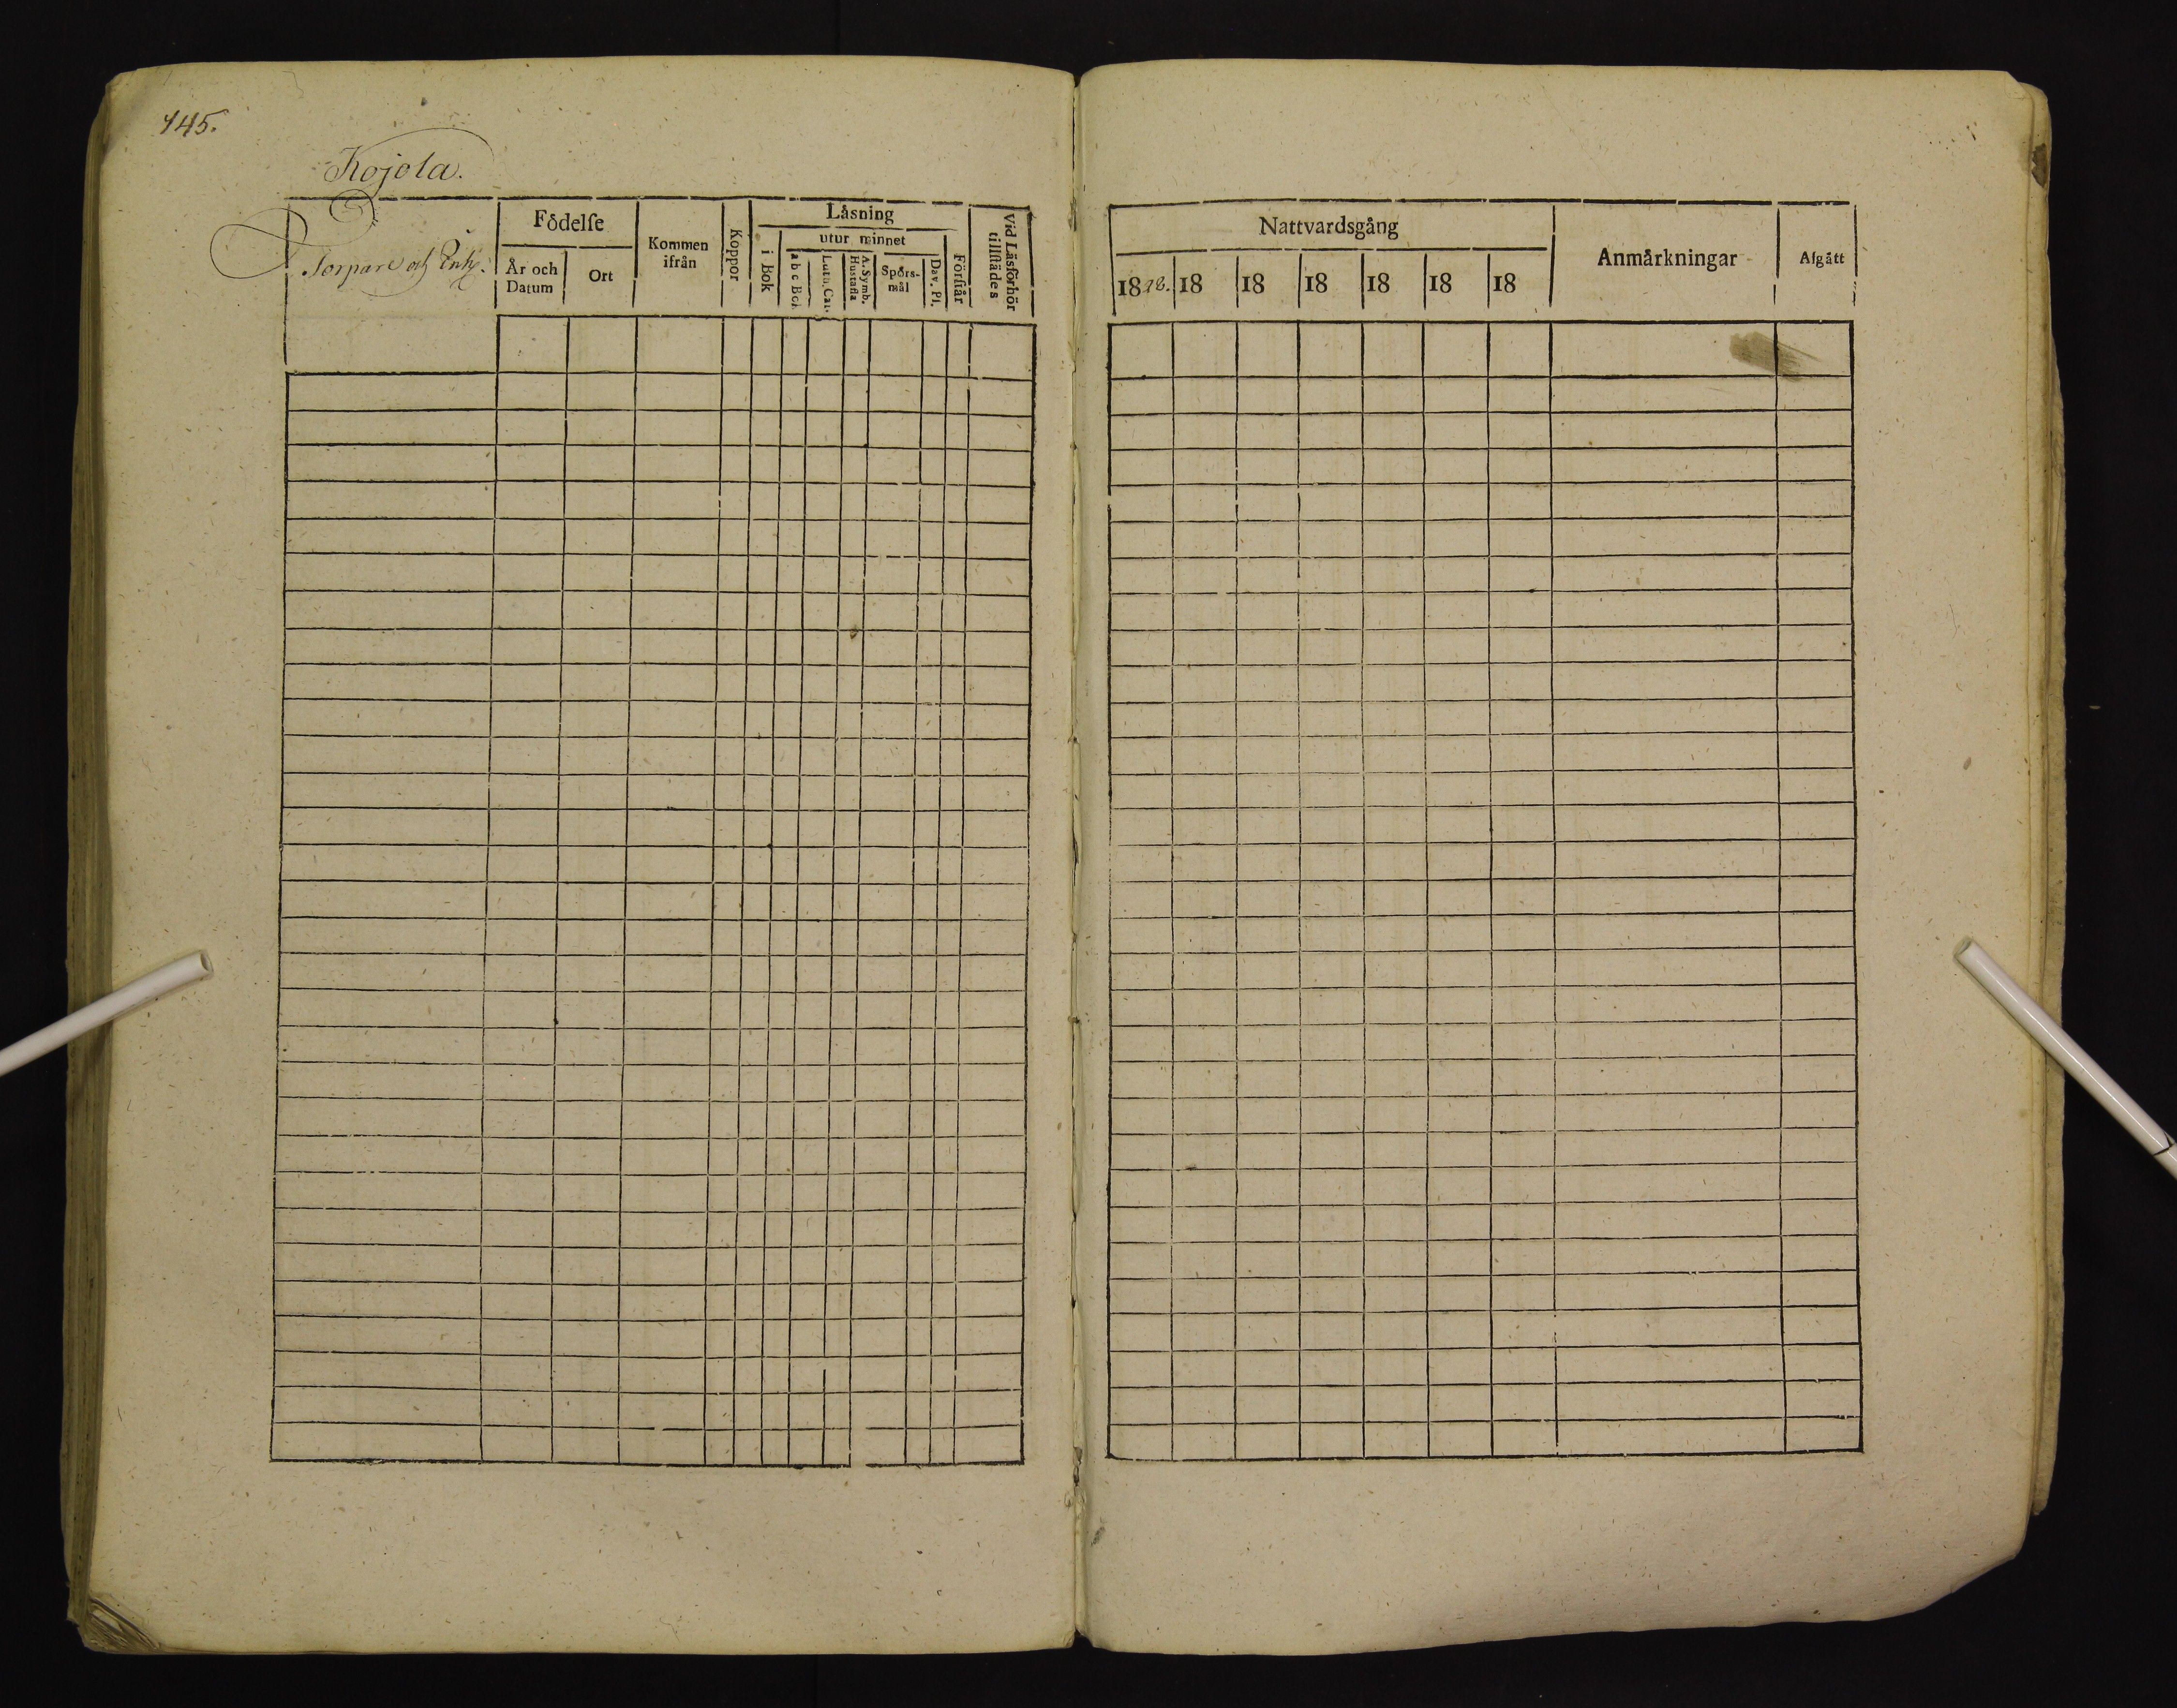 145.
Kojola.
Torpare och Enk.
Födelſe
År och Datum
Ort
Kommen ifrån
Koppor
Låsning
i Bok
utur minnet
a b c Bok
Luth. Cat.
A. Symb. Hustafla
Spörs-mål
Dav. Pſ.
Förſtår
Vid Läsförhör tillſtädes
Nattvardsgång
18 18 18 18 18 18 18
Anmårkningar
Afgått